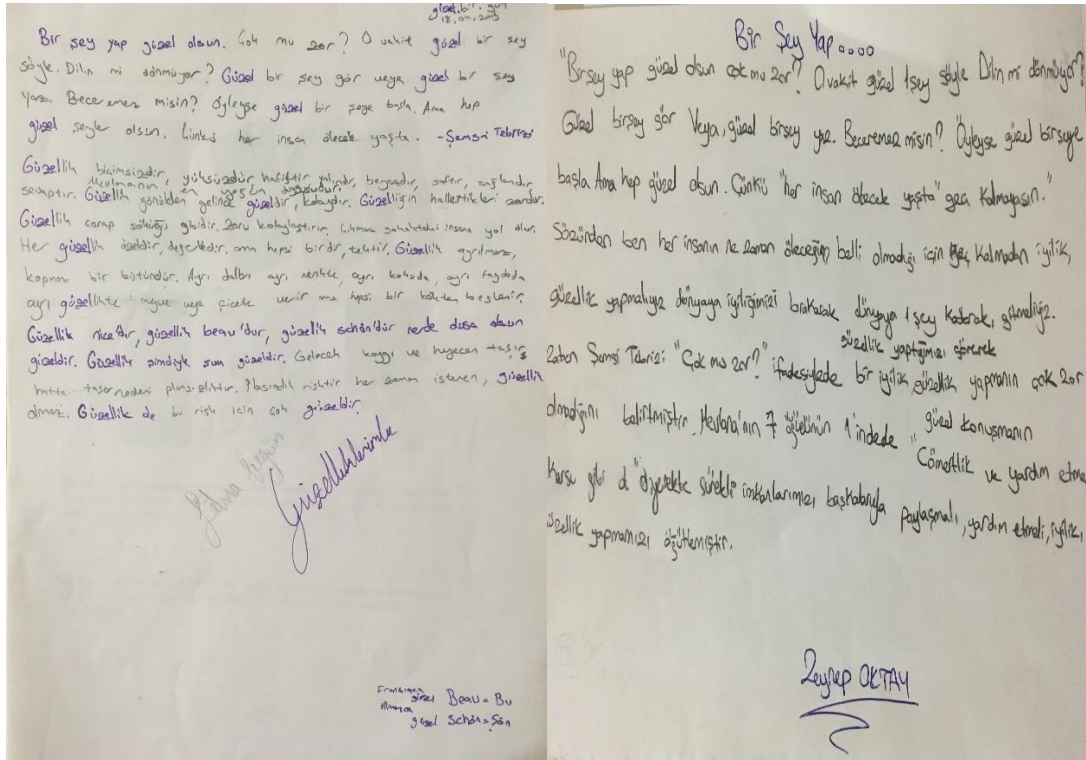 güzel bir gün
18.04.2025
Bir şey yap güzel olsun. Çok mu zor? O vakit güzel bir şey
söyle. Dilin mi dönmüyor? Güzel bir şey gör veya güzel bir şey
yaz. Beceremez misin? Öyleyse güzel bir şeye başla. Ama hep
güzel şeyler olsun. Çünkü her insan ölecek yaşta. -Şemsi Tebrizi
Güzellik biçimsizdir, yüksüzdür hafiftir yalındır, beyazdır, saftır,
sevaptır. Güzellik gönülden gelince güzeldir, kolaydır. Güzelliğin hallettikleri zordur.
Güzellik çorap söküğü gibidir. Zoru kolaylaştırır. Çıkmaz sokaktaki insana yol olur.
Her güzellik özeldir, değerlidir. ama hepsi birdir, tektir. Güzellik ayrılmaz,
kopmaz bir bütündür. Ayrı dalda ayrı renkte, ayrı kokuda, ayrı faydada
ayrı güzellikte meyve veya çiçek verir ama hepsi bir kökten beslenir.
Güzellik nice'dır, güzellik beau'dur, güzellik schön'dür nerde olsa olsun
güzeldir. Güzellik şimdiyle şuan güzeldir. Gelecek kaygı ve heyecan taşır
hatta taşar nedeni plansızlıktır. Plansızlık risktir her zaman istenen, güzellik
olmaz. Güzellik de bu risk için çok güzeldir.
Güzelliklerimle
Fransızca
güzel Beau = Bu
Almanca
güzel Schön = Şön
Bir Şey Yap....
"Birşey yap güzel olsun çok mu zor? O vakit güzel 1 şey söyle Dilin mi dönmüyor?
Güzel birşey gör Veya, güzel birşey yaz. Beceremez misin? Öyleyse güzel birşeye
başla Ama hep güzel olsun. Çünkü "her insan ölecek yaşta" geç kalmayasın."
Sözünden ben her insanın ne zaman öleceğini belli olmadığı için geç kalmadan iyilik,
güzellik yapmalıyız dünyaya iyiliğimizi bırakarak dünyaya 1 şey katarak, gitmeliyiz.
güzellik yaptığımızı görerek
Zaten Şemsi Tebrizi: "Çok mu zor?" ifadesiylede bir iyilik, güzellik yapmanın çok zor
güzel konuşmanın
olmadığını belirtmiştir. Mevlana'nın 7 öğüdünün 1'indede "Cömertlik ve yardım etme
Karsu gibi ol" diyerekte sürekli imkanlarımızı başkalarıyla paylaşmalı, yardım etmeli, iyilik,
güzellik yapmamızı öğütlemiştir.
Zeynep OKTAY